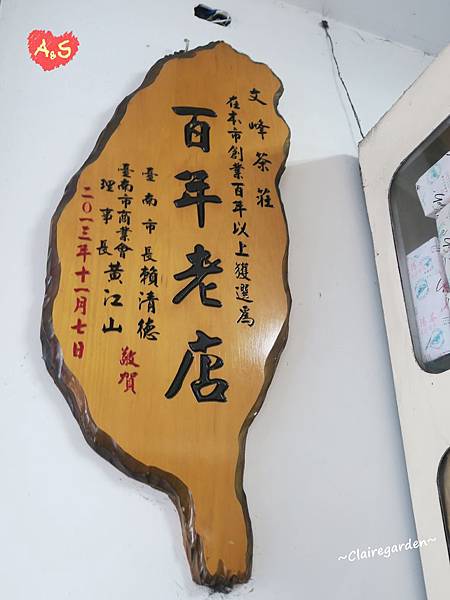 A&S
文峰茶莊
在本市創業百年以上獲選為
百年老店
臺南市長賴清德
臺南市商業會
理事長黃江山
敬賀
二〇一三年十一月七日
~Clairegarden~